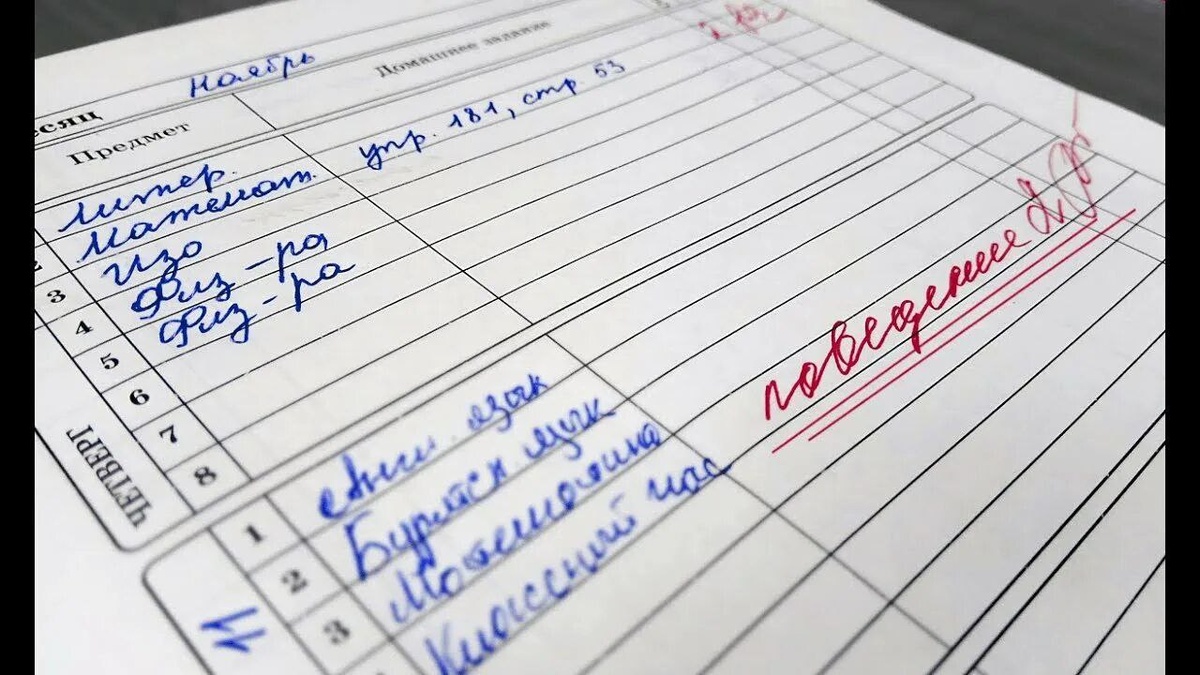 есяц ноябрь
Предмет Домашнее задание
2
литер.
Математ. упр. 181, стр. 53
3 Изо
4 Физ-ра
5 Физ-ра
6
7
8
ЧЕТВЕРГ
поведение 2
1 Англ. язык
2 Бурятск. язык
3 Математика
Классный час
11